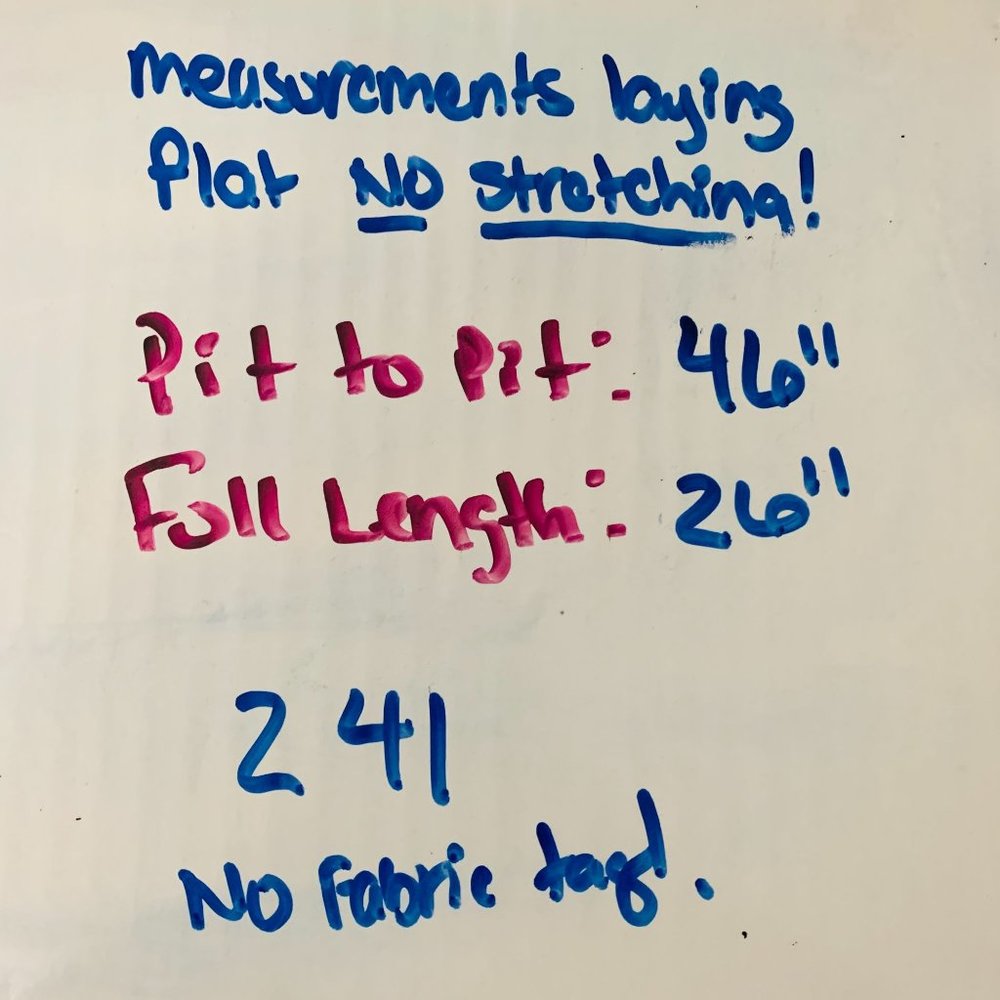 measurements laying
flat NO stretching!
Pit to Pit: 46"
Full Length: 26"
241
No Fabric tag.